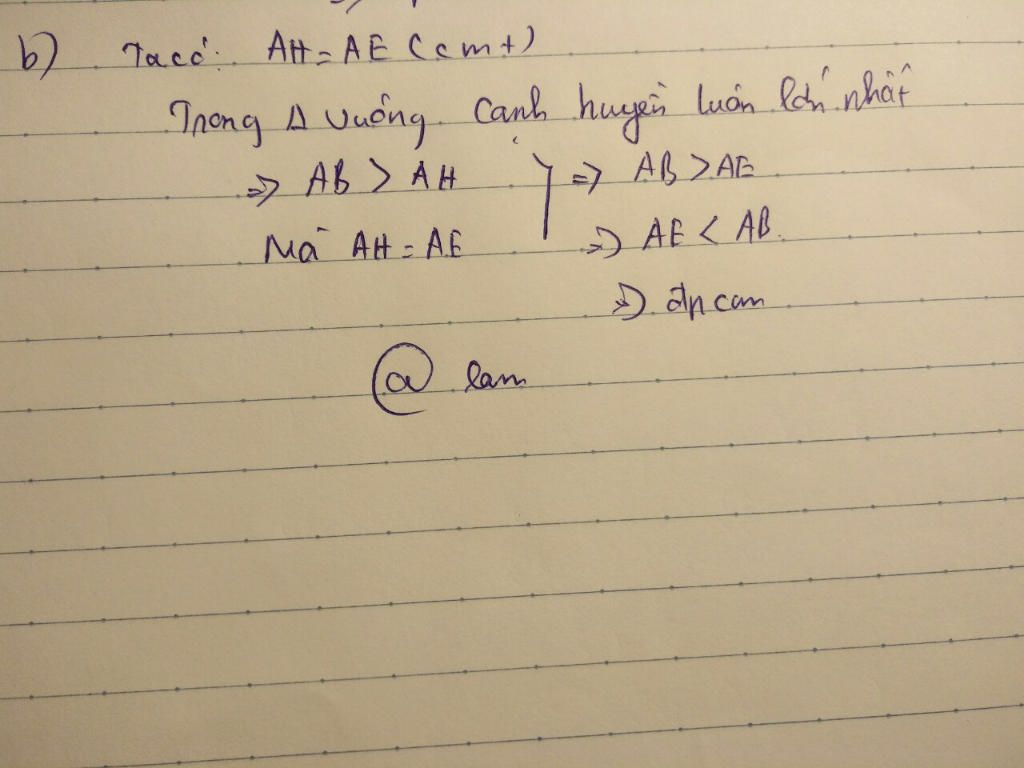 b) Ta có: AH = AE (cmt)
Trong Δ vuông cạnh huyền luôn lớn nhất
=> AB > AH } => AB > AE
Mà AH = AE => AE < AB.
=> đpcm
@ lam